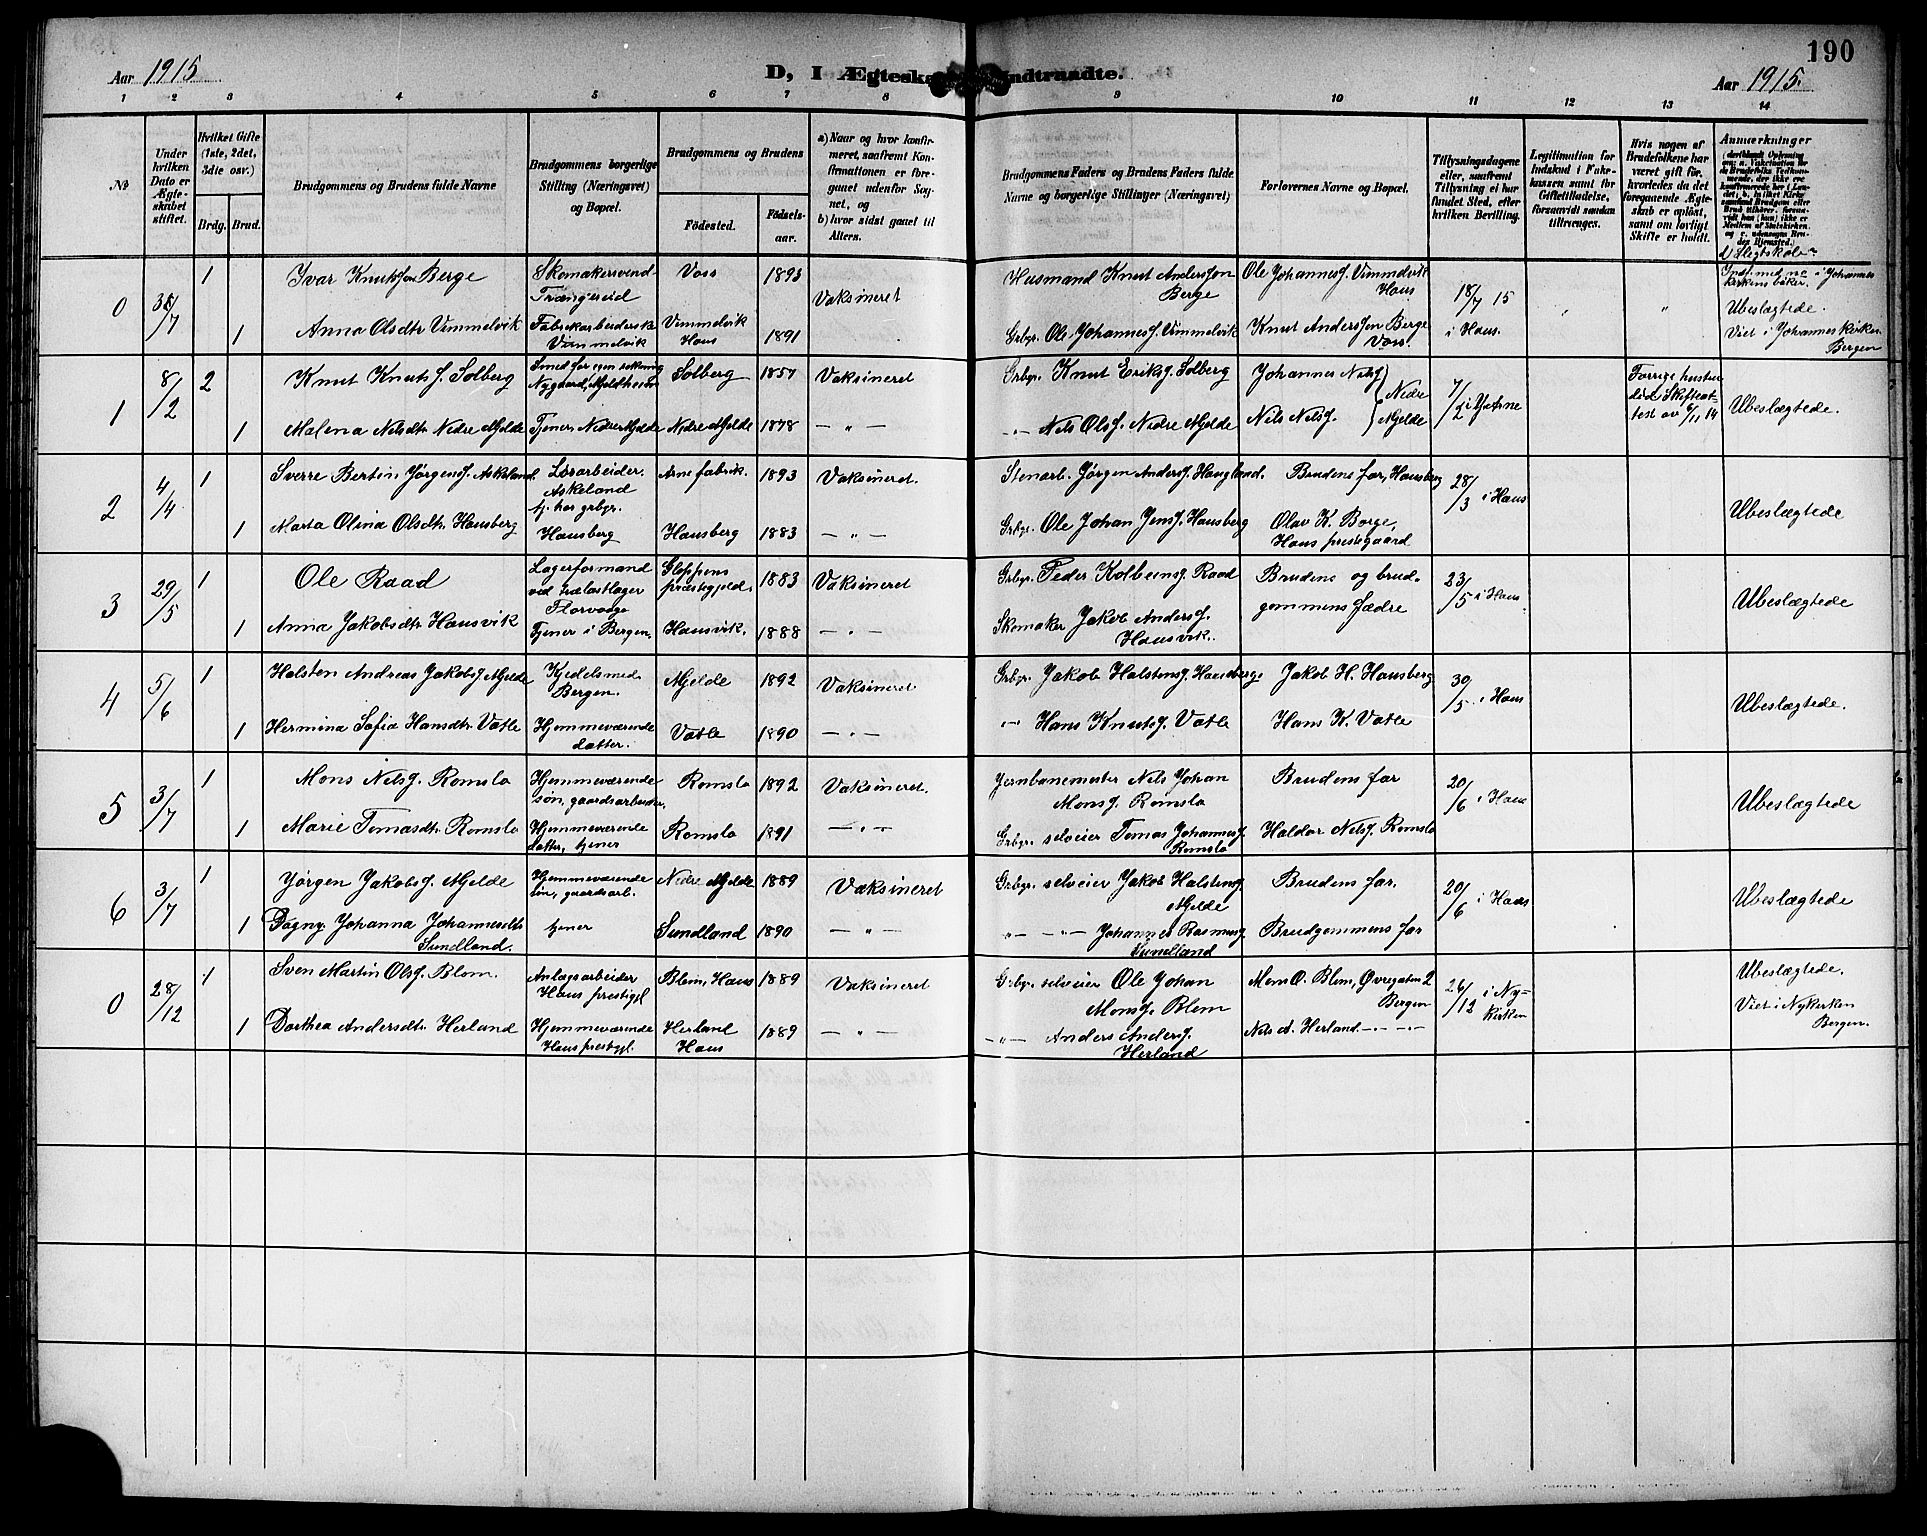 190
Aar 1915
D, I Ægteska ndtraadte.
Aar 1915.
1 2 3 4 5 6 7 8 9 10 11 12 13 14
No
Under hvilken Dato er Ægteskabet stiftet.
Hvilket Gifte (1ste, 2det, 3die osv.)
Brdg. Brud.
Brudgommens og Brudens fulde Navne
Brudgommens borgerlige Stilling (Næringsvei) og Bopæl.
Brudgommens og Brudens
Fødested.
Fødselsaar.
a) Naar og hvor konfirmeret, saafremt Konfirmationen er foregaaet udenfor Sognet, og
b) hvor sidst gaaet til Alters.
Brudgommens Faders og Brudens Faders fulde Navne og borgerlige Stillinger (Næringsvei)
Forlovernes Navne og Bopæl.
Tillysningsdagene eller, saafremt Tillysning ei har fundet Sted, efter hvilken Bevilling.
Legitimation for Indskud i Enkekassen samt for Giftetilladelse, forsaavidt saadan tiltrænges.
Hvis nogen af Brudefolkene har været gift før, hvorledes da det foregaaende Ægteskab er opløst, samt om lovligt Skifte er holdt.
Anmærkninger
d) Slegtskab
0 /7 1 Ivar Knutssøn Berge Skomakersvend Trængereid Voss 1893 Vaksineret Husmand Knut Anderssøn Berge Ole Johannesf. Vimmelvik Haus 18/7 15 i Haus.
Indf. med no i Johannes kirkens bøker.
Ubeslægtede.
1 Anna Olsdtr Vimmelvik Fabrikarbeiderske Vimmelvik Vimmelvik Haus 1891 Grbgr. Ole Johannesf. Vimmelvik Knut Anderssøn Berge Voss.
Viet i Johanneskirken Bergen
1 8/2 2 Knut Knutsf. Solberg Smed for egen rekning Nygaard, Mjeldheim Solberg 1857 Vaksineret Grbgr. Knut Eriksf. Solberg Johannes Nelsf. Nedre Mjelde 7/2 i Gjerne Forrige hustru død Skifteattest av 6/11 14 Ubeslægtede.
1 Malena Nelsdtr Nedre Mjelde Tjener, Nedre Mjelde Nedre Mjelde 1878 — " — — " — Nels Olsf. Nedre Mjelde Nils Nelsf.
2 4/4 1 Sverre Bertin Jørgensf. Askeland Lørarbeider. Askeland Arne fabrik. 1893 Vaksineret. Stenarb. Jørgen Andersf. Haugland. Brudens far, Hausberg 28/3 i Haus Ubeslægtede
1 Marta Olina Olsdtr. Hausberg tj. hos grbgr. Hausberg Hausberg 1883 — " — Grbgr. Ole Johan Jensf. Hausberg Olav K. Borge, Haus prestegaard
3 29/5 1 Ole Raad Lagerformand ved trælastlager Florvaage Gloppens præstegjeld. 1883 Vaksineret Grbgr. Peder Kolbeinsf. Raad Brudens og brudgommens fædre 23/5 i Haus Ubeslægtede
1 Anna Jakobsdtr Hausvik Tjener i Bergen. Hausvik. 1888 — " — Skomaker Jakob Andersf. Hausvik.
4 5/6 1 Halsten Andreas Jakobsf Mjelde Kjedelsmed Bergen. Mjelde 1892 Vaksineret Grbgr. Jakob Halstensf. Hausberg Jakob H. Hausberg 30/5 i Haus Ubeslægtede.
1 Hermina Sofia Hansdtr Vatle Hjemmeværende datter. Vatle 1890 — " — " Hans Knutsf. Vatle Hans K. Vatle
5 3/7 1 Mons Nelsf. Romslo Hjemmeværende søn, gaardsarbeider, Romslo 1892 Vaksineret. Jernbanemester Nels Johan Monsf. Romslo Brudens far 20/6 i Haus Ubeslægtede
1 Marie Tomasdtr. Romslo Hjemmeværende datter, tjener Romslo 1891 — " — Grbgr. selveier Tomas Johannesf. Romslo Haldor Nelsf. Romslo
6 3/7 1 Jørgen Jakobsf. Mjelde Hjemmeværende søn, gaardsarb. Nedre Mjelde 1889 Vaksineret Grbgr. selveier Jakob Halstensf Mjelde Brudens far. 20/6 i Haus Ubeslægtede
1 Dagny Johanna Johannesdtr Sundland. tjener Sundland 1890 — " — " — " — Johannes Rasmusf Sundland Brudgommens far
0 28/12 1 Sven Martin Olsf. Blom. Anlagsarbeider Haus prestegjl Blom, Haus 1889 Vaksineret Grbgr. selveier Ole Johan Monsf. Blom Mons O. Blom, Øvregaten 2 Bergen 26/12 i Nykirken Ubeslægtede.
1 Dorthea Andersdtr. Herland Hjemmeværende Haus prestgjl. Herland Haus 1889 — " — — " — Anders Andersf. Herland Nels A. Herland — " —
Viet i Nykirken Bergen.